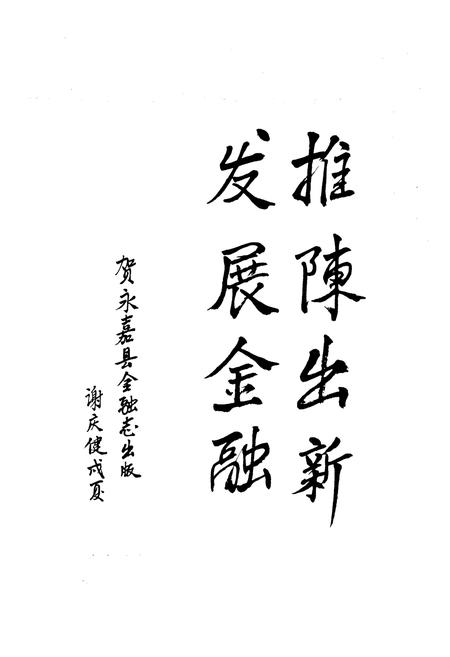 推陳出新
发展金融
贺永嘉县金融志出版
谢庆健戊夏